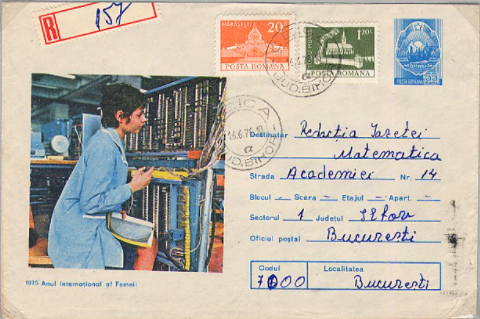 R 157
MĂRĂȘEȘTI
20
POSTA ROMANA
1,20
POSTA ROMANA
JUD. BIHOR
16.6.76
JUD. BIHOR
Destinatar Redacția Gazetei
Matematica
Strada Academiei Nr. 14
Blocul - Scara - Etajul - Apart. -
Sectorul 1 Județul Ilfov
Oficiul poștal București
Codul Localitatea
7000 București
1975 Anul Internațional al Femeii